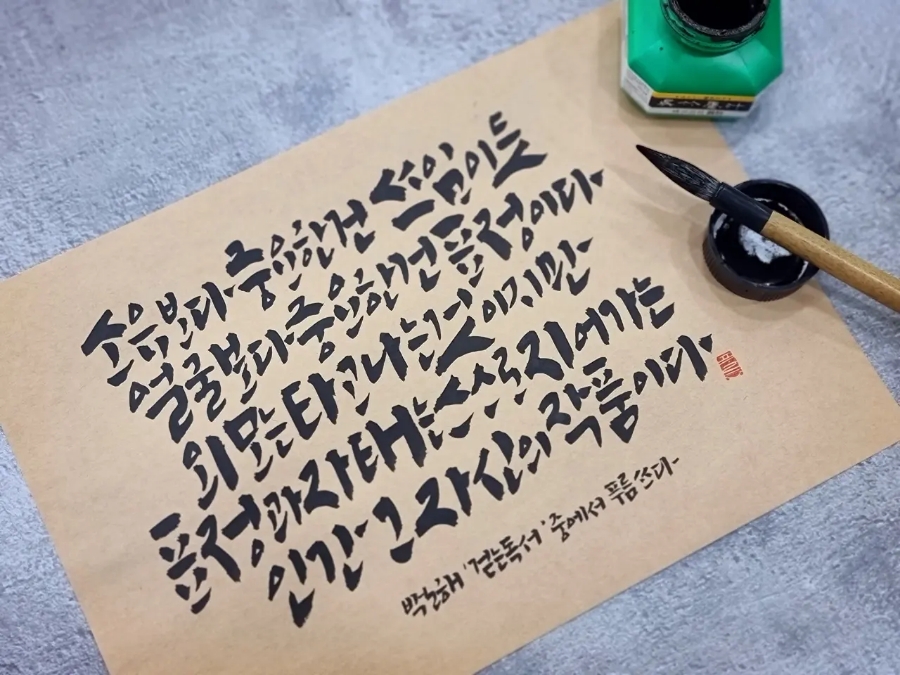 소유보다 중요한건 쓰임이듯
얼굴보다 중요한건 표정이다.
외모는 타고나는 것이지만
표정과 자태는 스스로 지어가는
인간 그 자신의 작품이다.
박노해 '걷는독서' 중에서 푸름 쓰다-